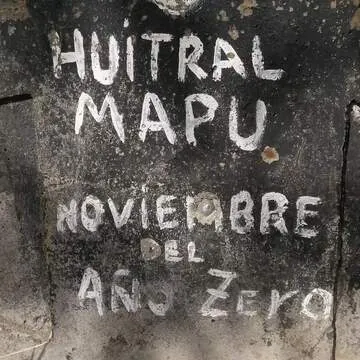 HUITRAL
MAPU
NOVIEMBRE
DEL
AÑO ZerO